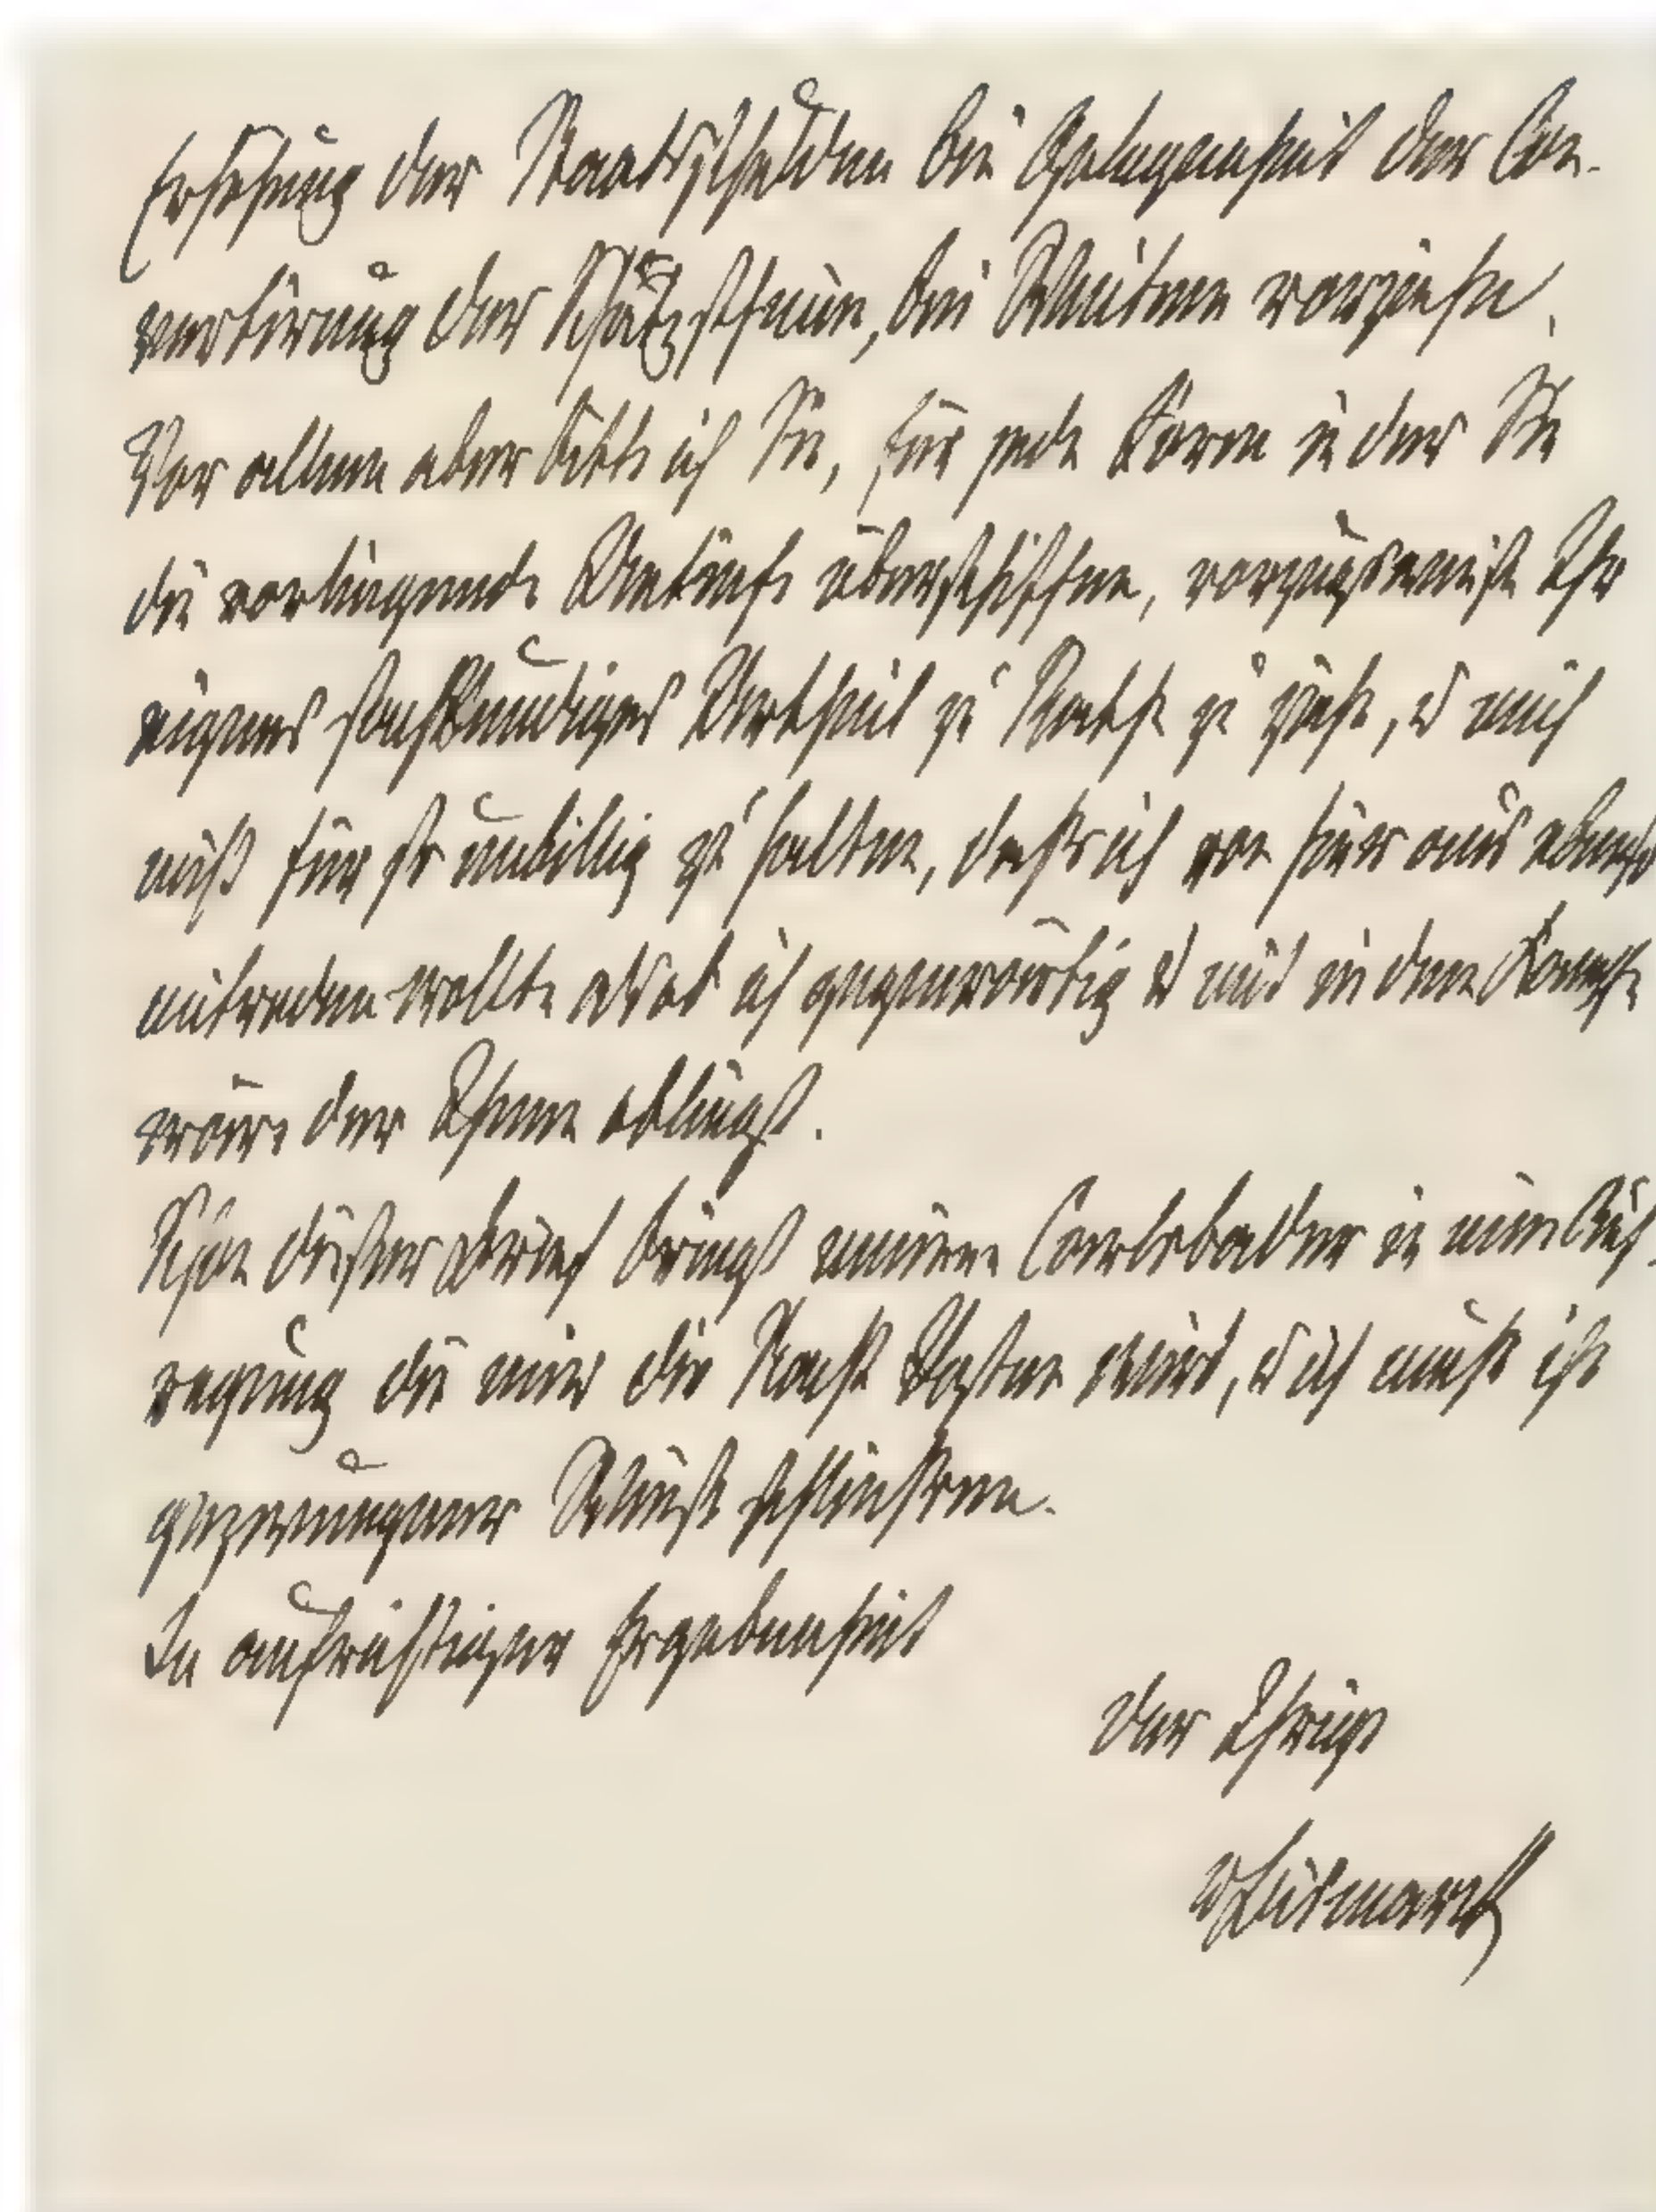 Erhöhung der Staatsschulden bei Gelegenheit der Con-
vertirung der Schatzscheine, bei Weitem vorziehe.
Vor allem aber bitte ich Sie, für jede Form in der Sie
die vorliegende überschiffen, vorzugsweise Ihr
eignes sachkundiges Urtheil zu Rathe zu ziehn, u mich
nicht für so unbillig zu halten, daß ich von hier aus
mitreden wollte als ob ich gegenwärtig u mit in dem Kampfe
wäre der Ihnen obliegt.
Schon dieser Brief bringt meinen Carlsbader in eine Auf-
regung die mir die Nacht kosten wird, u ich muß ihn
gezwungner Weise schließen.
In aufrichtiger Ergebenheit
der Ihrige
vBismarck